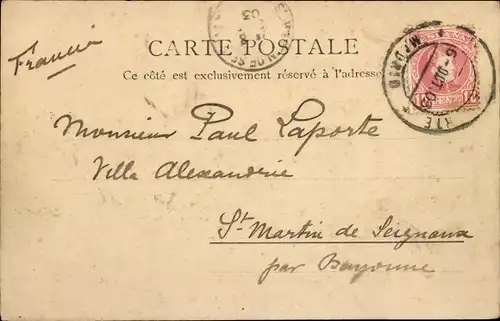 Francia
CARTE POSTALE
Ce côté est exclusivement réservé à l'adresse
Monsieur Paul Laporte
Villa Alexandrine
St Martin de Seignanx
par Bayonne
MADRID
03
10